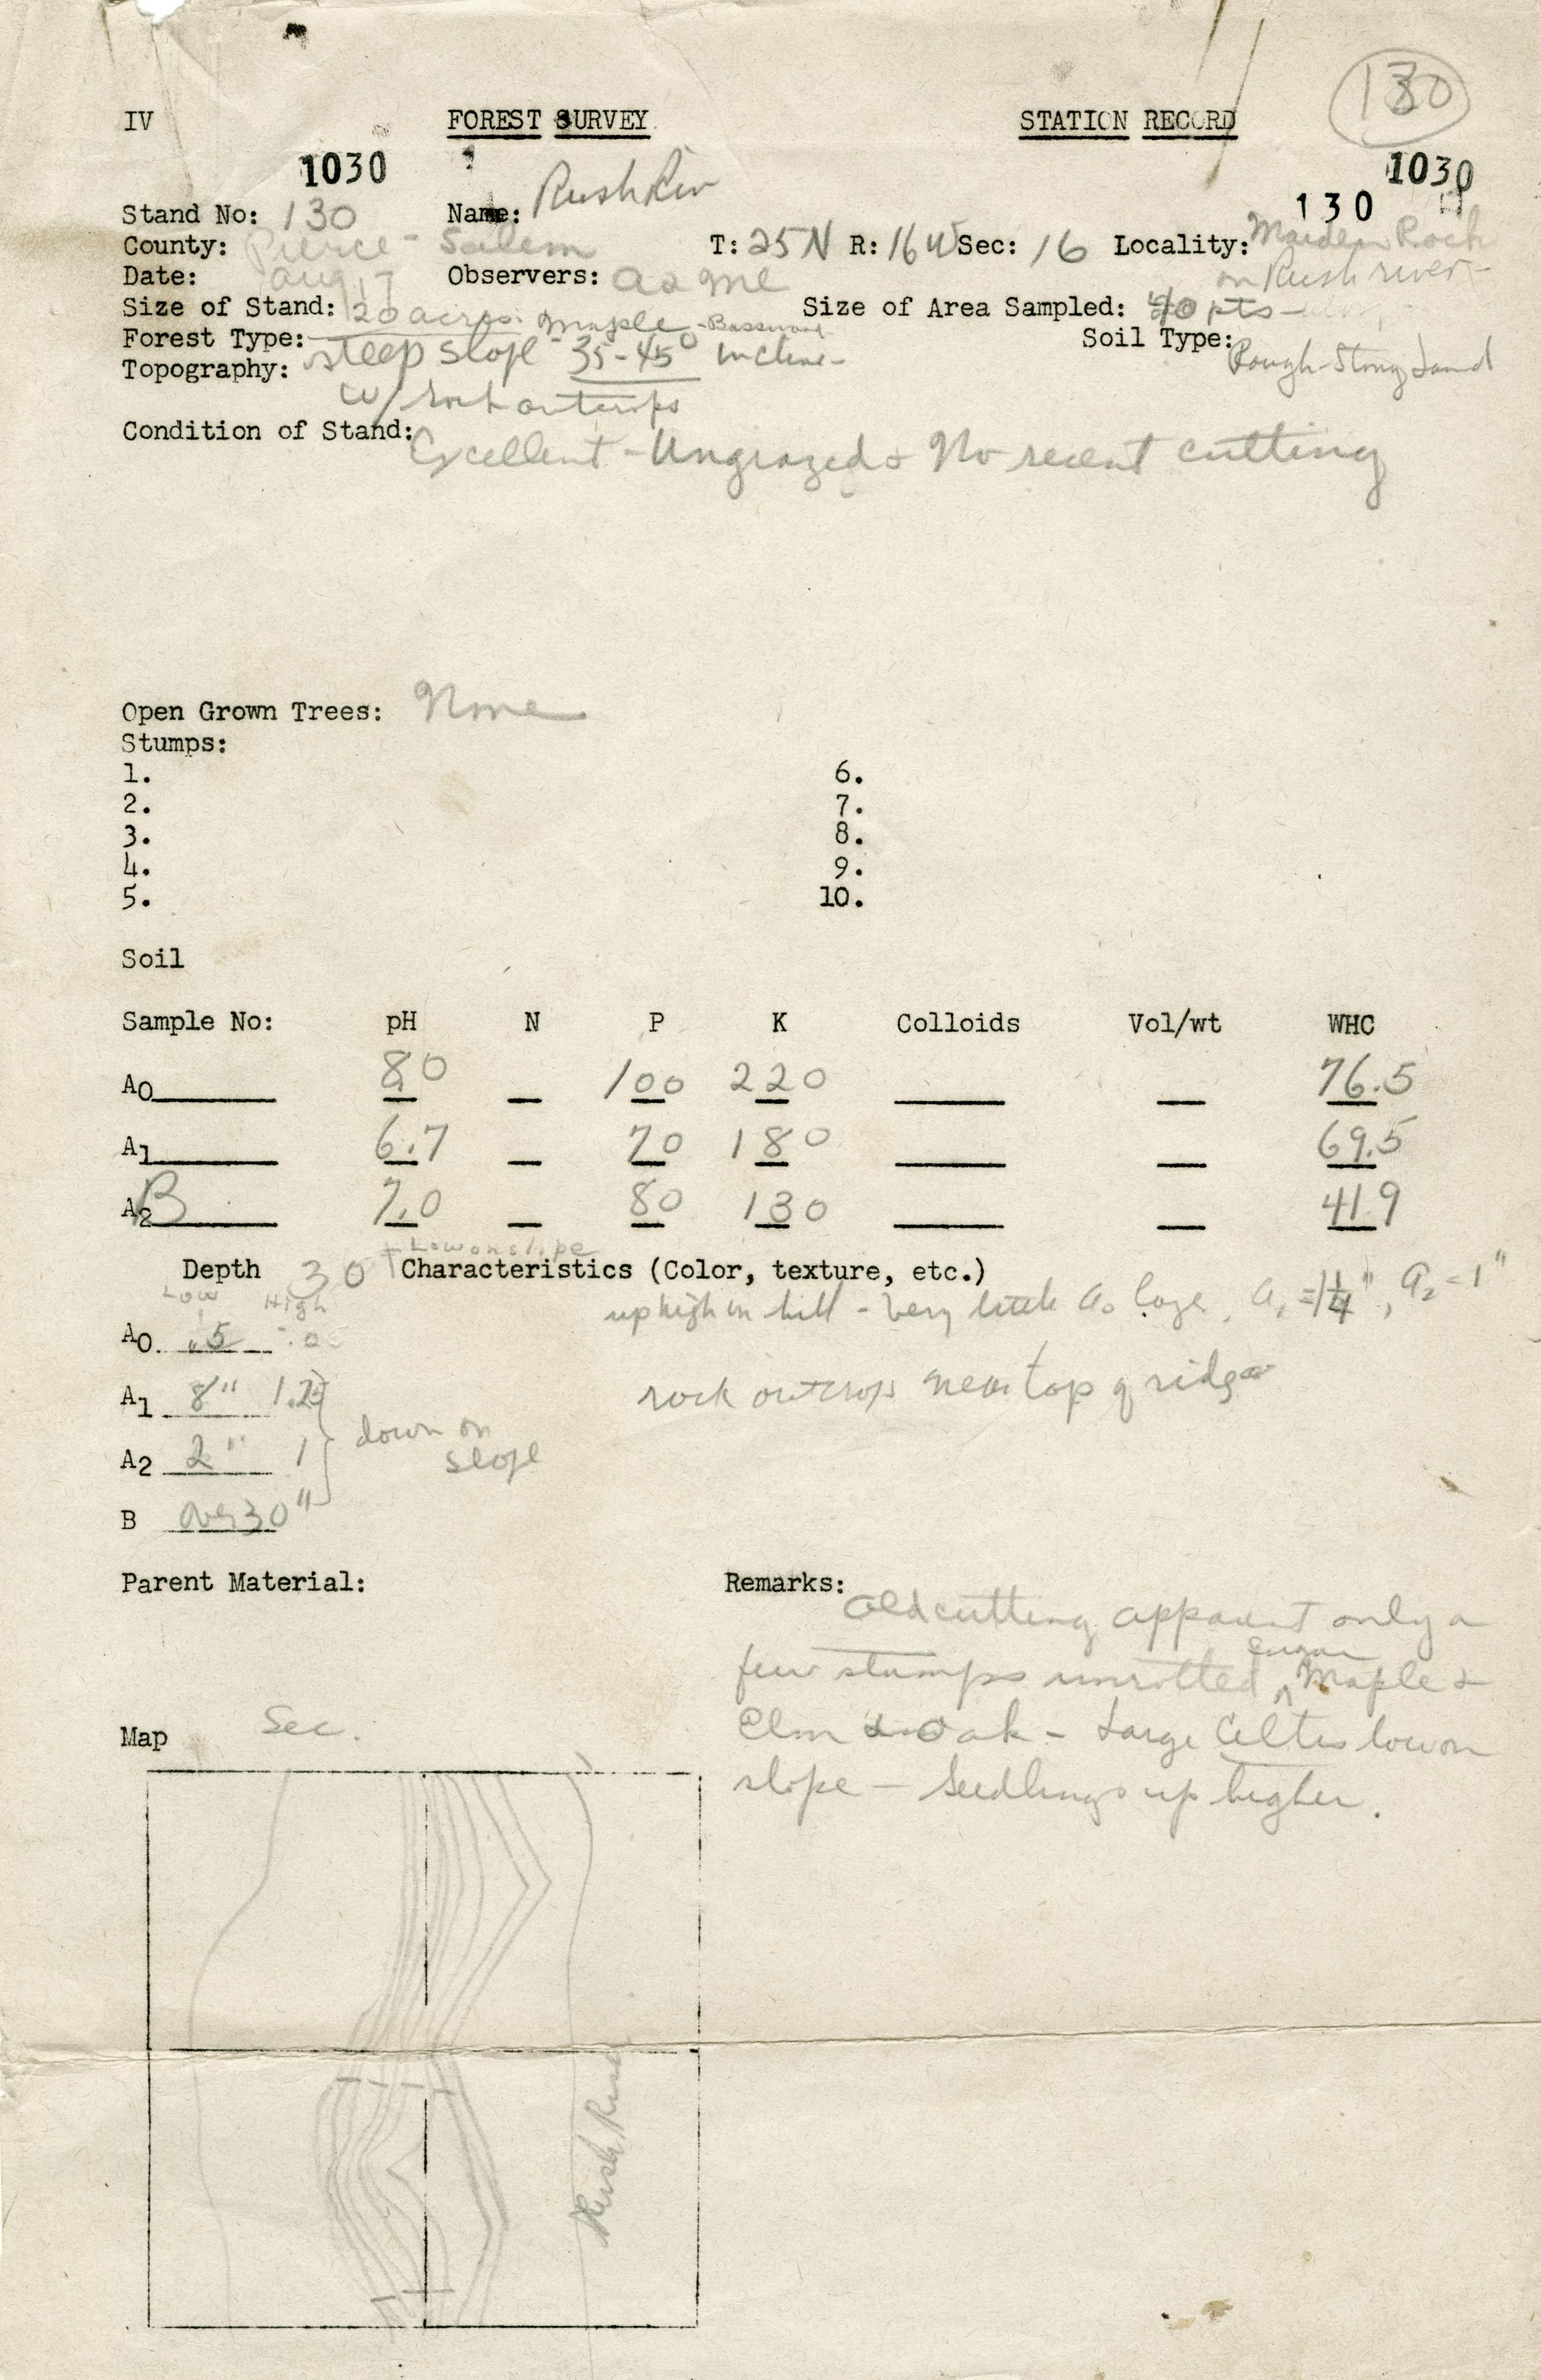 130
IV FOREST SURVEY STATION RECORD
1030 1030
130
Stand No: 130 Name: Rush Riv
County: Pierce - Salem T: 25N R: 16W Sec: 16 Locality: Maiden Rock
on Rush river
Date: Aug 17 Observers:
Size of Stand: 20 acres Size of Area Sampled: 40 pts
Forest Type: Maple - Basswood Soil Type: Rough Stony Land
Topography: steep slope 35-45° incline
w/ rock outcrops
Condition of Stand: Excellent - Ungrazed & No recent cutting
Open Grown Trees: None
Stumps:
1. 6.
2. 7.
3. 8.
4. 9.
5. 10.
Soil
Sample No: pH N P K Colloids Vol/wt WHC
A0 8.0 100 220 76.5
A1 6.7 70 180 69.5
A2 B 7.0 80 130 41.9
Low on slope
Depth 30 Characteristics (Color, texture, etc.)
Low High
up high on hill - Very little A0 layer, A1 = 1 1/4", A2 = 1"
A0 .5
A1 8" 1.25
rock outcrops near top of ridge
A2 2" 1
down on
slope
B over 30"
Parent Material: Remarks:
Old cutting apparent only a
few stumps unrotted sugar Maple &
Elm & Oak - Large Celtis low on
slope - Seedlings up higher.
Map Sec.
Rush River